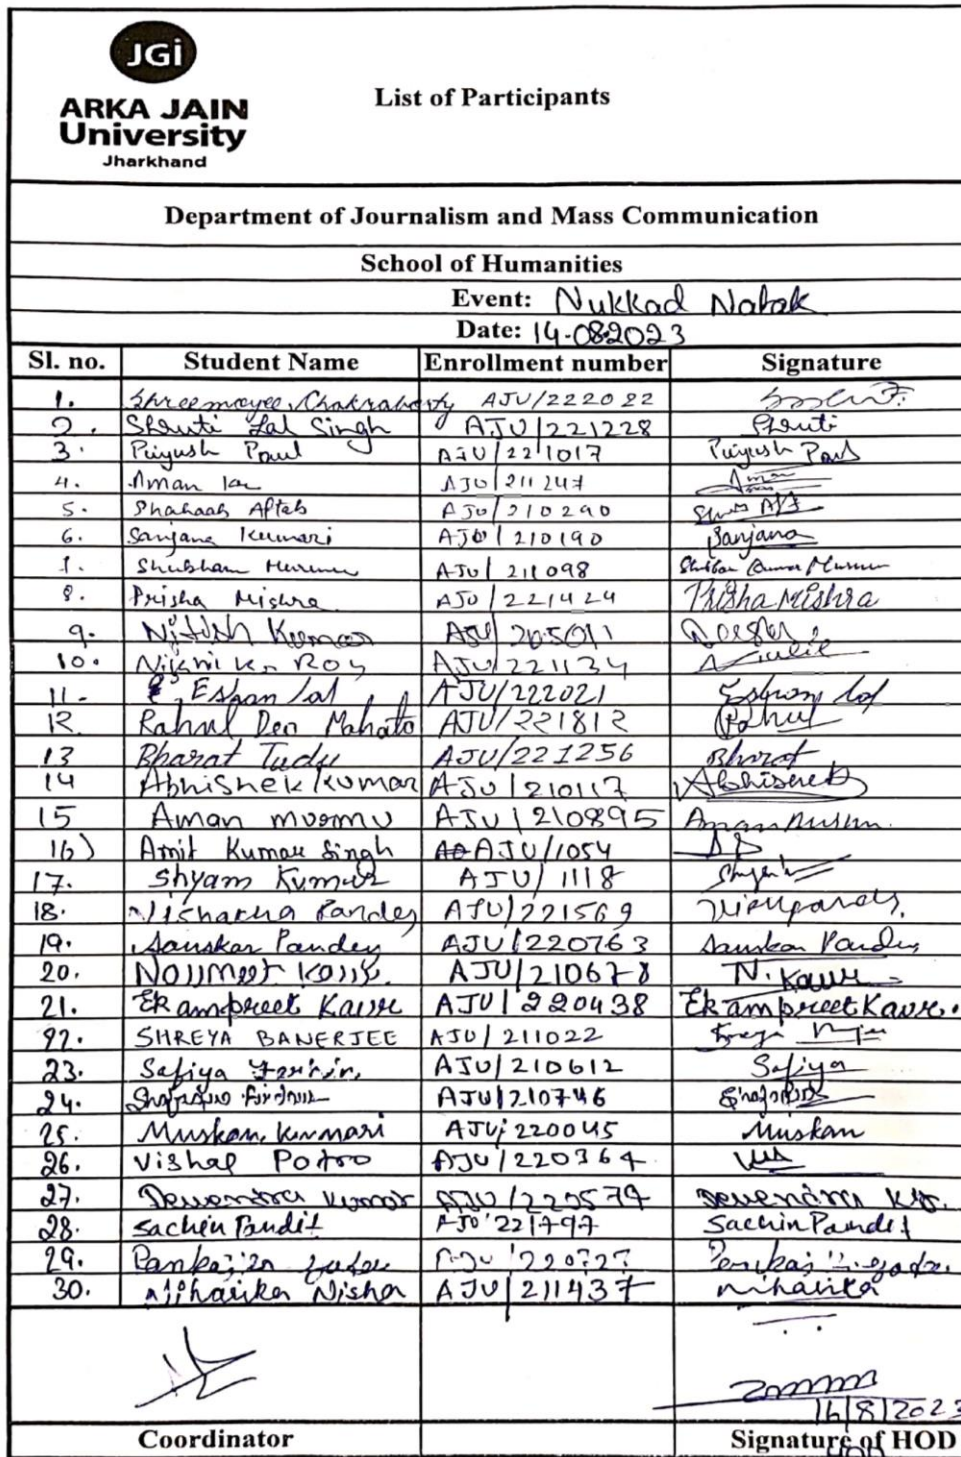 JGi
ARKA JAIN
University
Jharkhand
List of Participants
Department of Journalism and Mass Communication
School of Humanities
Event: Nukkad Natak
Date: 14-08-2023
Sl. no. Student Name Enrollment number Signature
1. Shreemoyee Chakraborty AJU/222022
2. Shruti Lal Singh AJU/221228 Shruti
3. Piyush Paul AJU/221017 Piyush Paul
4. Aman AJU/211247 Aman
5. Shahaab Aftab AJU/210290
6. Sanjana Kumari AJU/210190 Sanjana
7. Shubham Murmu AJU/211098 Shubham Kumar Murmu
8. Prisha Mishra AJU/221424 Prisha Mishra
9. Nitish Kumar AJU/205011
10. Niharika Roy AJU/221134
11. Eshan Lal AJU/222021 Eshan Lal
12 Rahul Deo Mahato AJU/221812 Rahul
13 Bharat Tudu AJU/221256 Bharat
14 Abhishek Kumar AJU/210117 Abhishek
15 Aman murmu AJU/210895 Aman Murmu
16) Amit Kumar Singh AJU/1054
17. Shyam Kumar AJU/1118
18. Vishakha Pandey AJU/221569
19. Sanskar Pandey AJU/220763 Sanskar Pandey
20. Navmeet Kaur AJU/210678 N. Kaur
21. Ekampreet Kaur AJU/220438 Ekampreet Kaur.
22. SHREYA BANERJEE AJU/211022
23. Safiya AJU/210612 Safiya
24. AJU/210746
25. Muskan Kumari AJU/220045 Muskan
26. Vishal Potro AJU/220364
27. Devendra Kumar AJU/220579 Devendra Kr.
28. Sachin Pandit AJU/221797 Sachin Pandit
29. Pankaj AJU/220727 Pankaj
30. Niharika Nisha AJU/211437 niharika
16/8/2023
Coordinator Signature of HOD